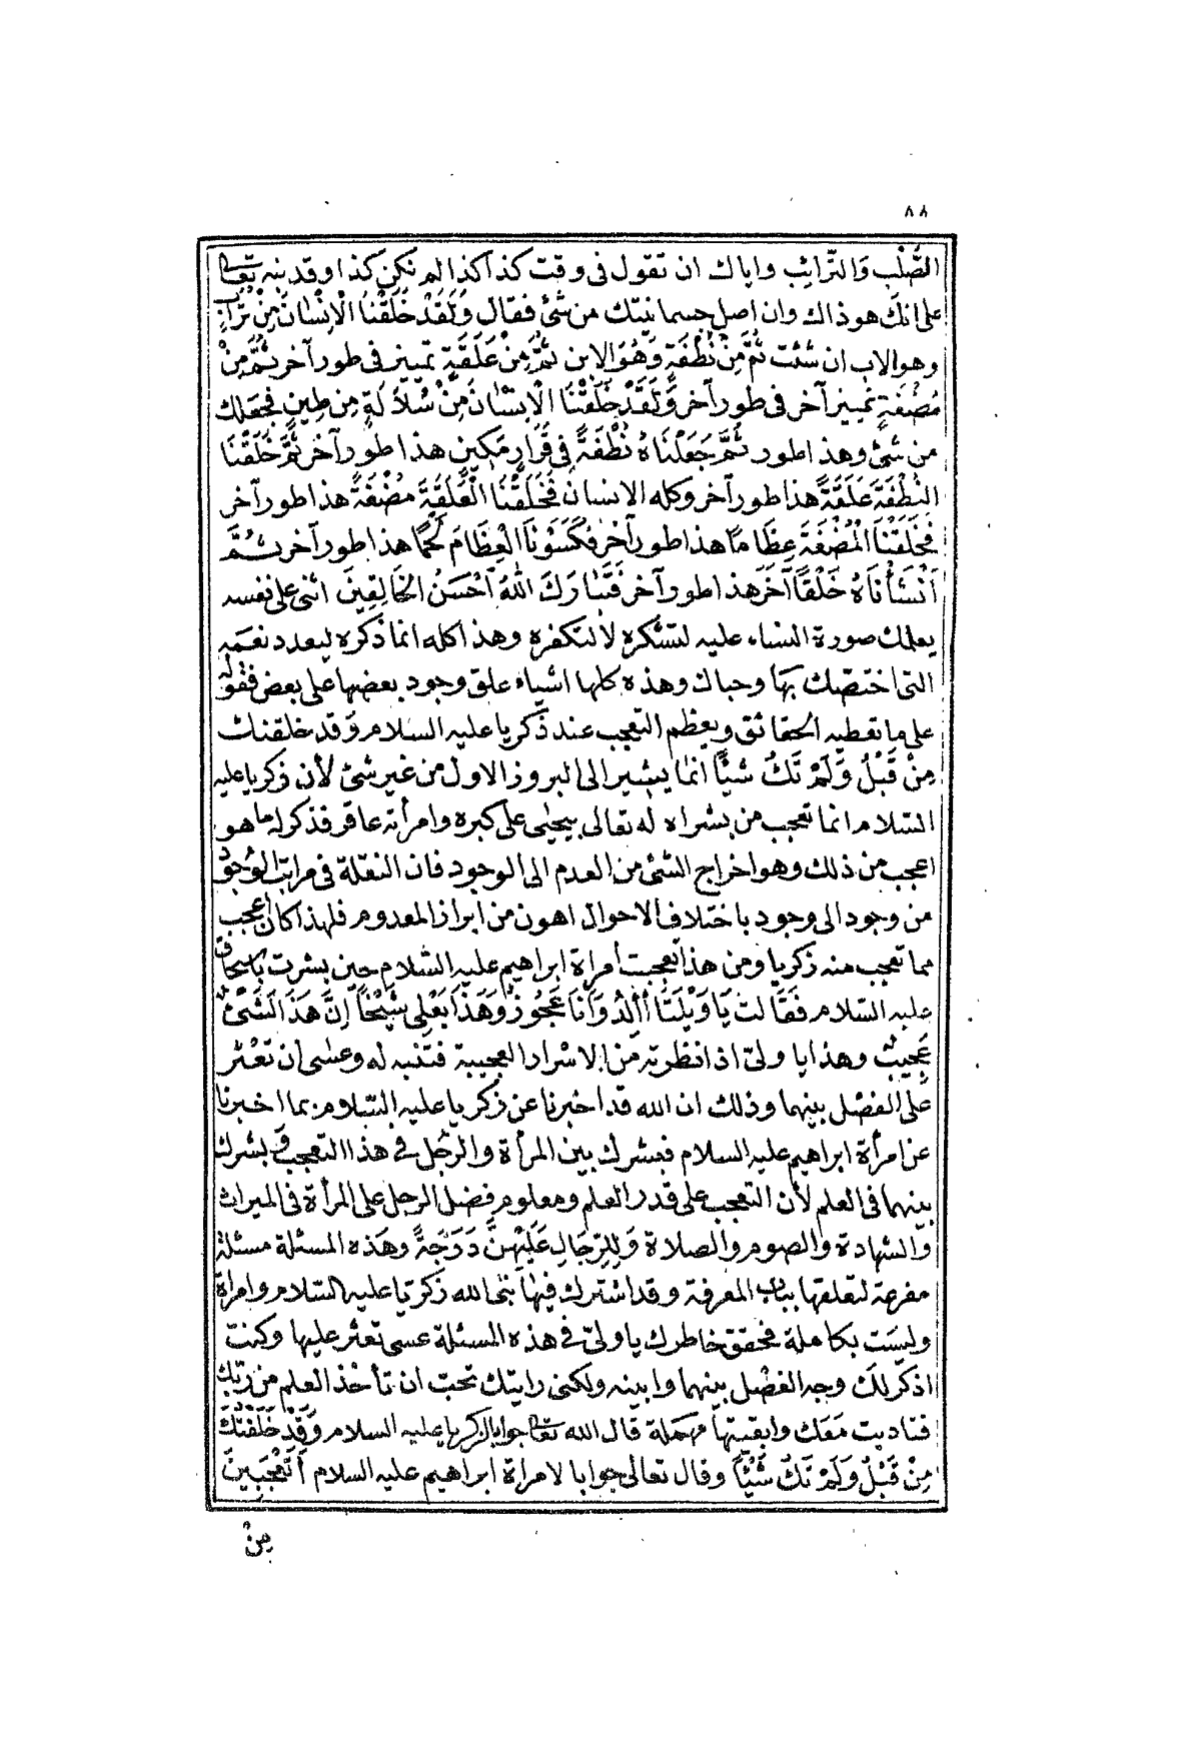 ٨٨
الصُّلْب وَالتَّرائِب واياك ان تقول فى وقت كذا كذا لم نكن كذا وقد نبه تعالى
على انك هو ذاك وان اصل جسمانيتك من شئ فقال وَلَقَدْ خَلَقْنَا الْاِنْسَانَ مِنْ تُرَابٍ
وهو الاب ان شئت ثُمَّ مِنْ نُطْفَةٍ وَهُوَ الابن ثُمَّ مِنْ عَلَقَةٍ تمييز فى طور آخر ثُمَّ مِنْ
مُضْغَةٍ تمييز آخر فى طور آخر وَلَقَدْ خَلَقْنَا الْاِنْسَانَ مِنْ سُلَالَةٍ مِن طِينٍ فجعلك
من شئ وهذا طور ثُمَّ جَعَلْنَاهُ نُطْفَةً فِى قَرَارٍ مَكِينٍ هذا طور آخر ثُمَّ خَلَقْنَا
النُطْفَةَ عَلَقَةً هذا طور آخر وكله الانسان فَخَلَقْنَا الْعَلَقَةَ مُضْغَةً هذا طور آخر
فَخَلَقْنَا الْمُضْغَةَ عِظَامًا هذا طور آخر فَكَسَوْنَا الْعِظَامَ لَحْمًا هذا طور آخر ثُمَّ
اَنْشَأْنَاهُ خَلْقًا آخَرَ هذا طور آخر فَتَبَارَكَ اللهُ اَحْسَنُ الْخَالِقِينَ اثنى على نفسه
يعلمك صورة الثناء عليه لتشكره لا لتكفره وهذا كله انما ذكره ليعدد نعمه
التى اختصّك بها وحباك وهذه كلها اشياء علق وجود بعضها على بعض فقوله
على ما تعطيه الحقائق ويعظم التعجب عند ذكريا عليه السلام وَقد خلقتك
مِنْ قَبْلُ وَلَمْ تَكُ شَيْئًا انما يشير الى البروز الاول من غير شئ لأن ذكريا عليه
السلام انما تعجب من بشراه له تعالى بيحيى على كبره وامرأته عاقر فذكر له ما هو
اعجب من ذلك وهو اخراج الشئ من العدم الى الوجود فان النقلة فى مراتب الوجود
من وجود الى وجود باختلاف الاحوال اهون من ابراز المعدوم فلهذا كان اعجب
مما تعجب منه ذكريا ومن هذا تعجبت امراة ابراهيم عليه السّلام حين بشرت باسحاق
عليه السّلام فَقَالَتْ يَا وَيْلَتَا أَأَلِدُ وَاَنَا عَجُوزٌ وَهَذَا بَعْلِى شَيْخًا اِنَّ هَذَا لَشَىْءٌ
عَجِيبٌ وهذا يا ولىّ اذا نظرته من الاسرار العجيبة فتنبه له وعسى ان تعثر
على الفضل بينهما وذلك ان الله قد اخبرنا عن ذكريا عليه السّلام بما اخبرنا
عن امرأة ابراهيم عليه السلام فبشرك بين المرأة والرّجل فى هذا التعجب وبشرك
بينهما فى العلم لأن التعجب على قدر العلم ومعلوم فضل الرجل على المرأة فى الميراث
والشهادة والصوم والصلاة وَلِلرِّجَالِ عَلَيْهِنَّ دَرَجَةً وهذه المسئلة مسئلة
مفرعة لتعلقها بباب المعرفة وقد اشترك فيها نبى الله ذكريا عليه السّلام وامراة
وليست بكاملة فحقق خاطرك يا ولىّ فى هذه المسئلة عسى تعثر عليها وكنت
اذكر لك وجه الفضل بينهما وابينه ولكنى رايتك تحب ان تأخذ العلم من ربّك
فتادبت معك وابقيتها مهملة قال الله تعالى جوابا لزكريا عليه السلام وَقَدْ خَلَقْتُكَ
مِنْ قَبْلُ وَلَمْ تَكُ شَيْئًا وقال تعالى جوابا لامراة ابراهيم عليه السلام أَتَعْجَبِينَ
مِنْ